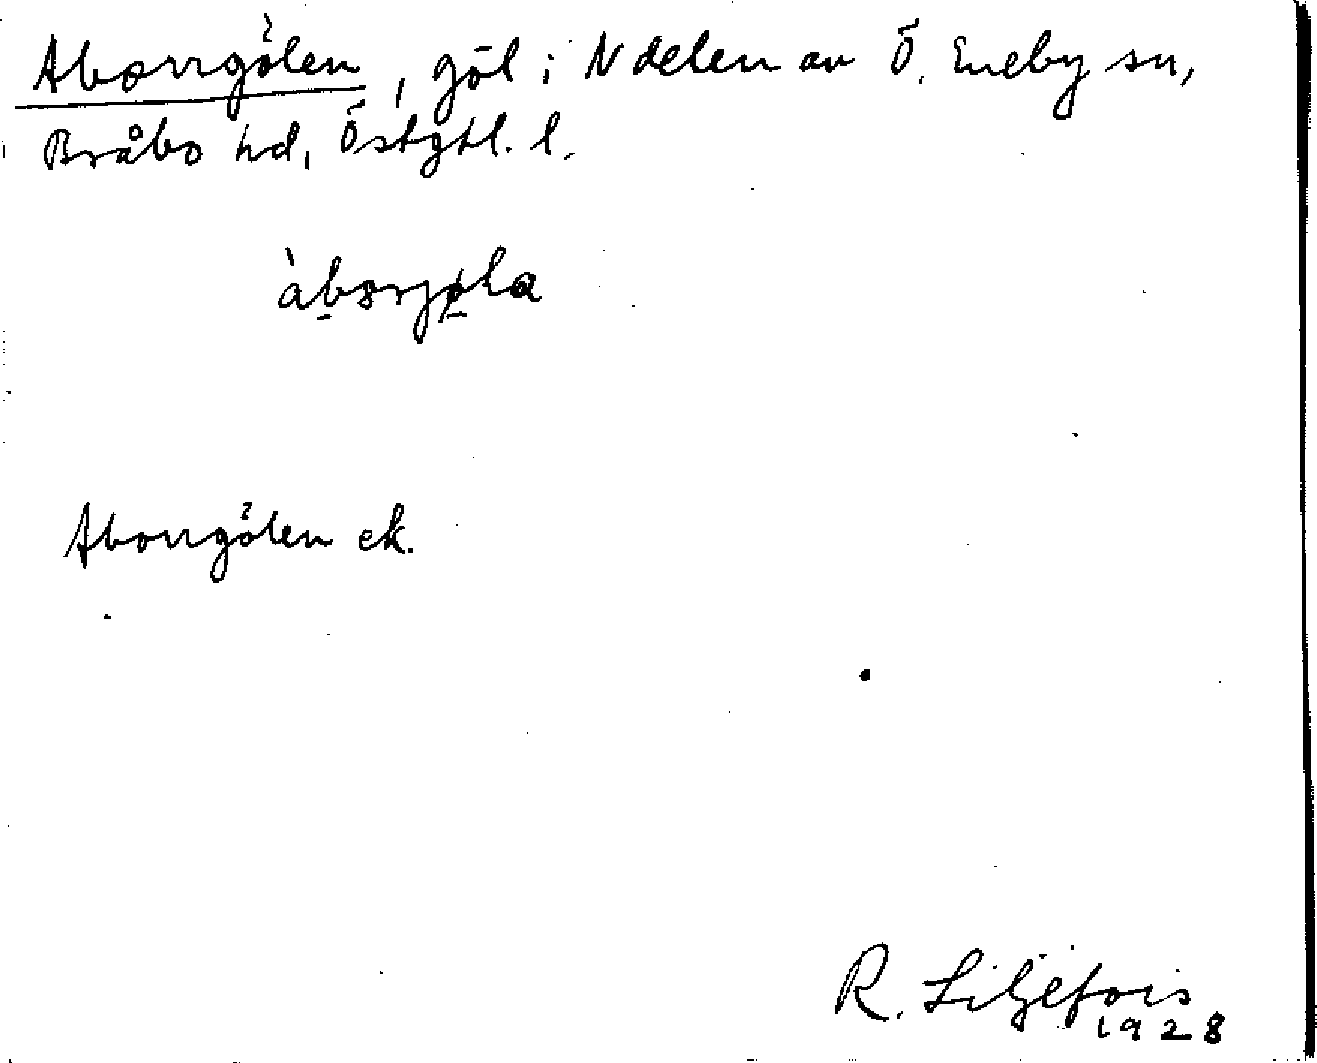 Aborrgölen, göl i N delen av Ö. Eneby sn,
Bråbo hd, Östgtl. l.
Aborrgölen ek.
R. Liljefors
1928